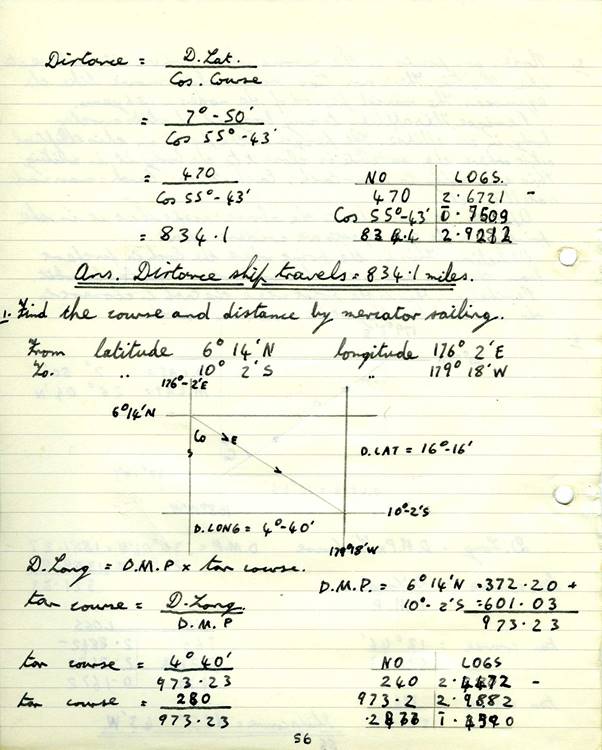 Distance = D.Lat.
Cos. Course
= 7° - 50'
Cos 55° - 43'
= 470
Cos 55° - 43'
= 834.1
NO LOGS.
470 2.6721 -
Cos 55° - 43' 1̄.7509
834.4 2.9212
Ans. Distance ship travels = 834.1 miles.
1. Find the course and distance by mercator sailing.
From latitude 6° 14' N longitude 176° 2' E
To. " 10° 2' S " 179° 18' W
176° - 2' E
6° 14' N
Co
E
S
D.LAT = 16° - 16'
10° - 2' S
D.LONG = 4° - 40'
179° 18' W
D.Long = D.M.P x tan course.
D.M.P. = 6° 14' N = 372.20 +
10° - 2' S = 601.03
973.23
tan course = D.Long.
D.M.P
tan course = 4° 40'
973.23
tan course = 280
973.23
NO LOGS
240 2.4472 -
973.2 2.9882
56